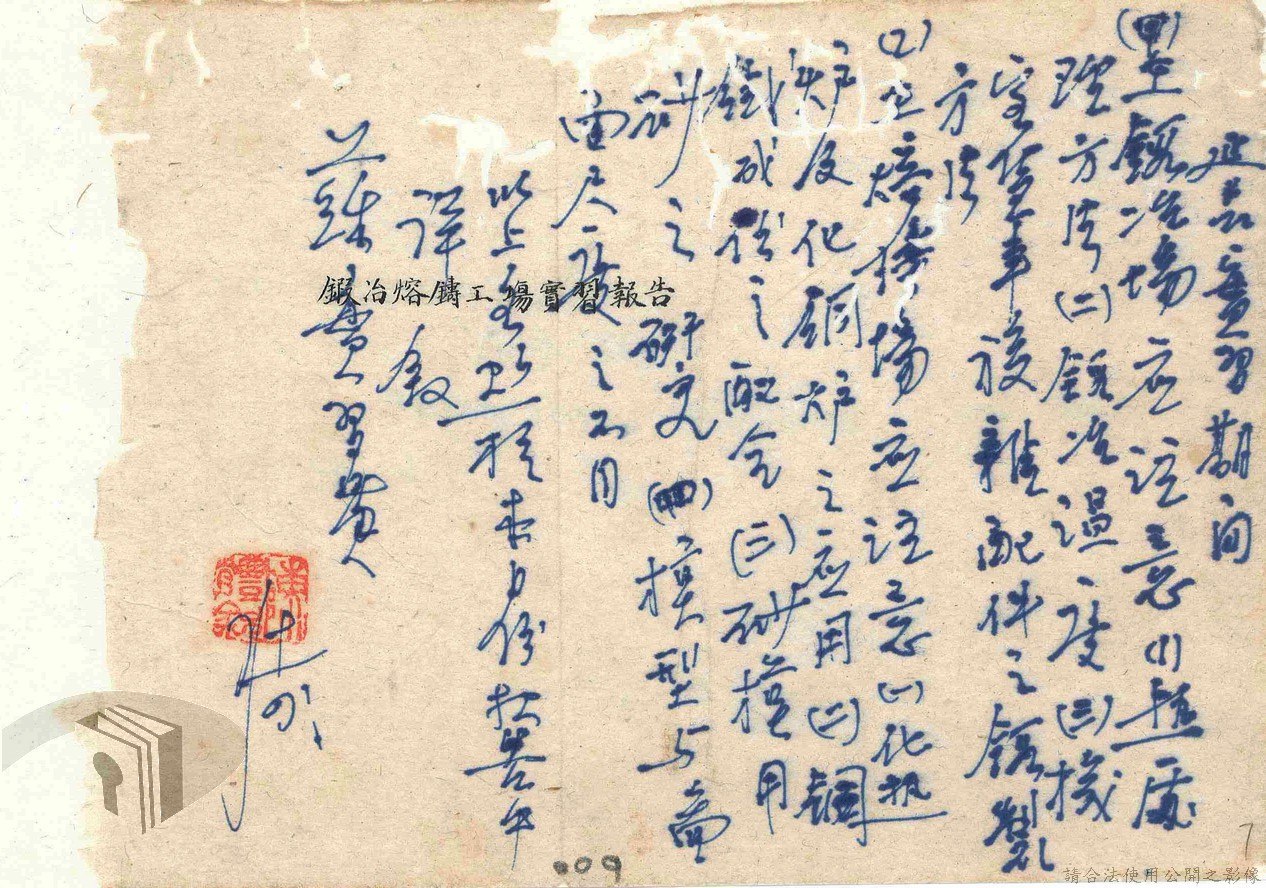 此在實習期間
(甲)至鍛冶場應注意(1)熱處
理方法(二)鍛冶溫度(三)機
車及雜配件之鍛製
方法
(乙)至熔鑄場應注意(一)化熱
炉及化銅炉之应用(二)銅
鐵成份之配合(三)砂模用
砂之研究(四)模型与畫
圖尺度之不同
以上各点於本月份报告中
詳叙
實習員
鍛冶熔鑄工場實習報告
009
7
請合法使用公開之影像